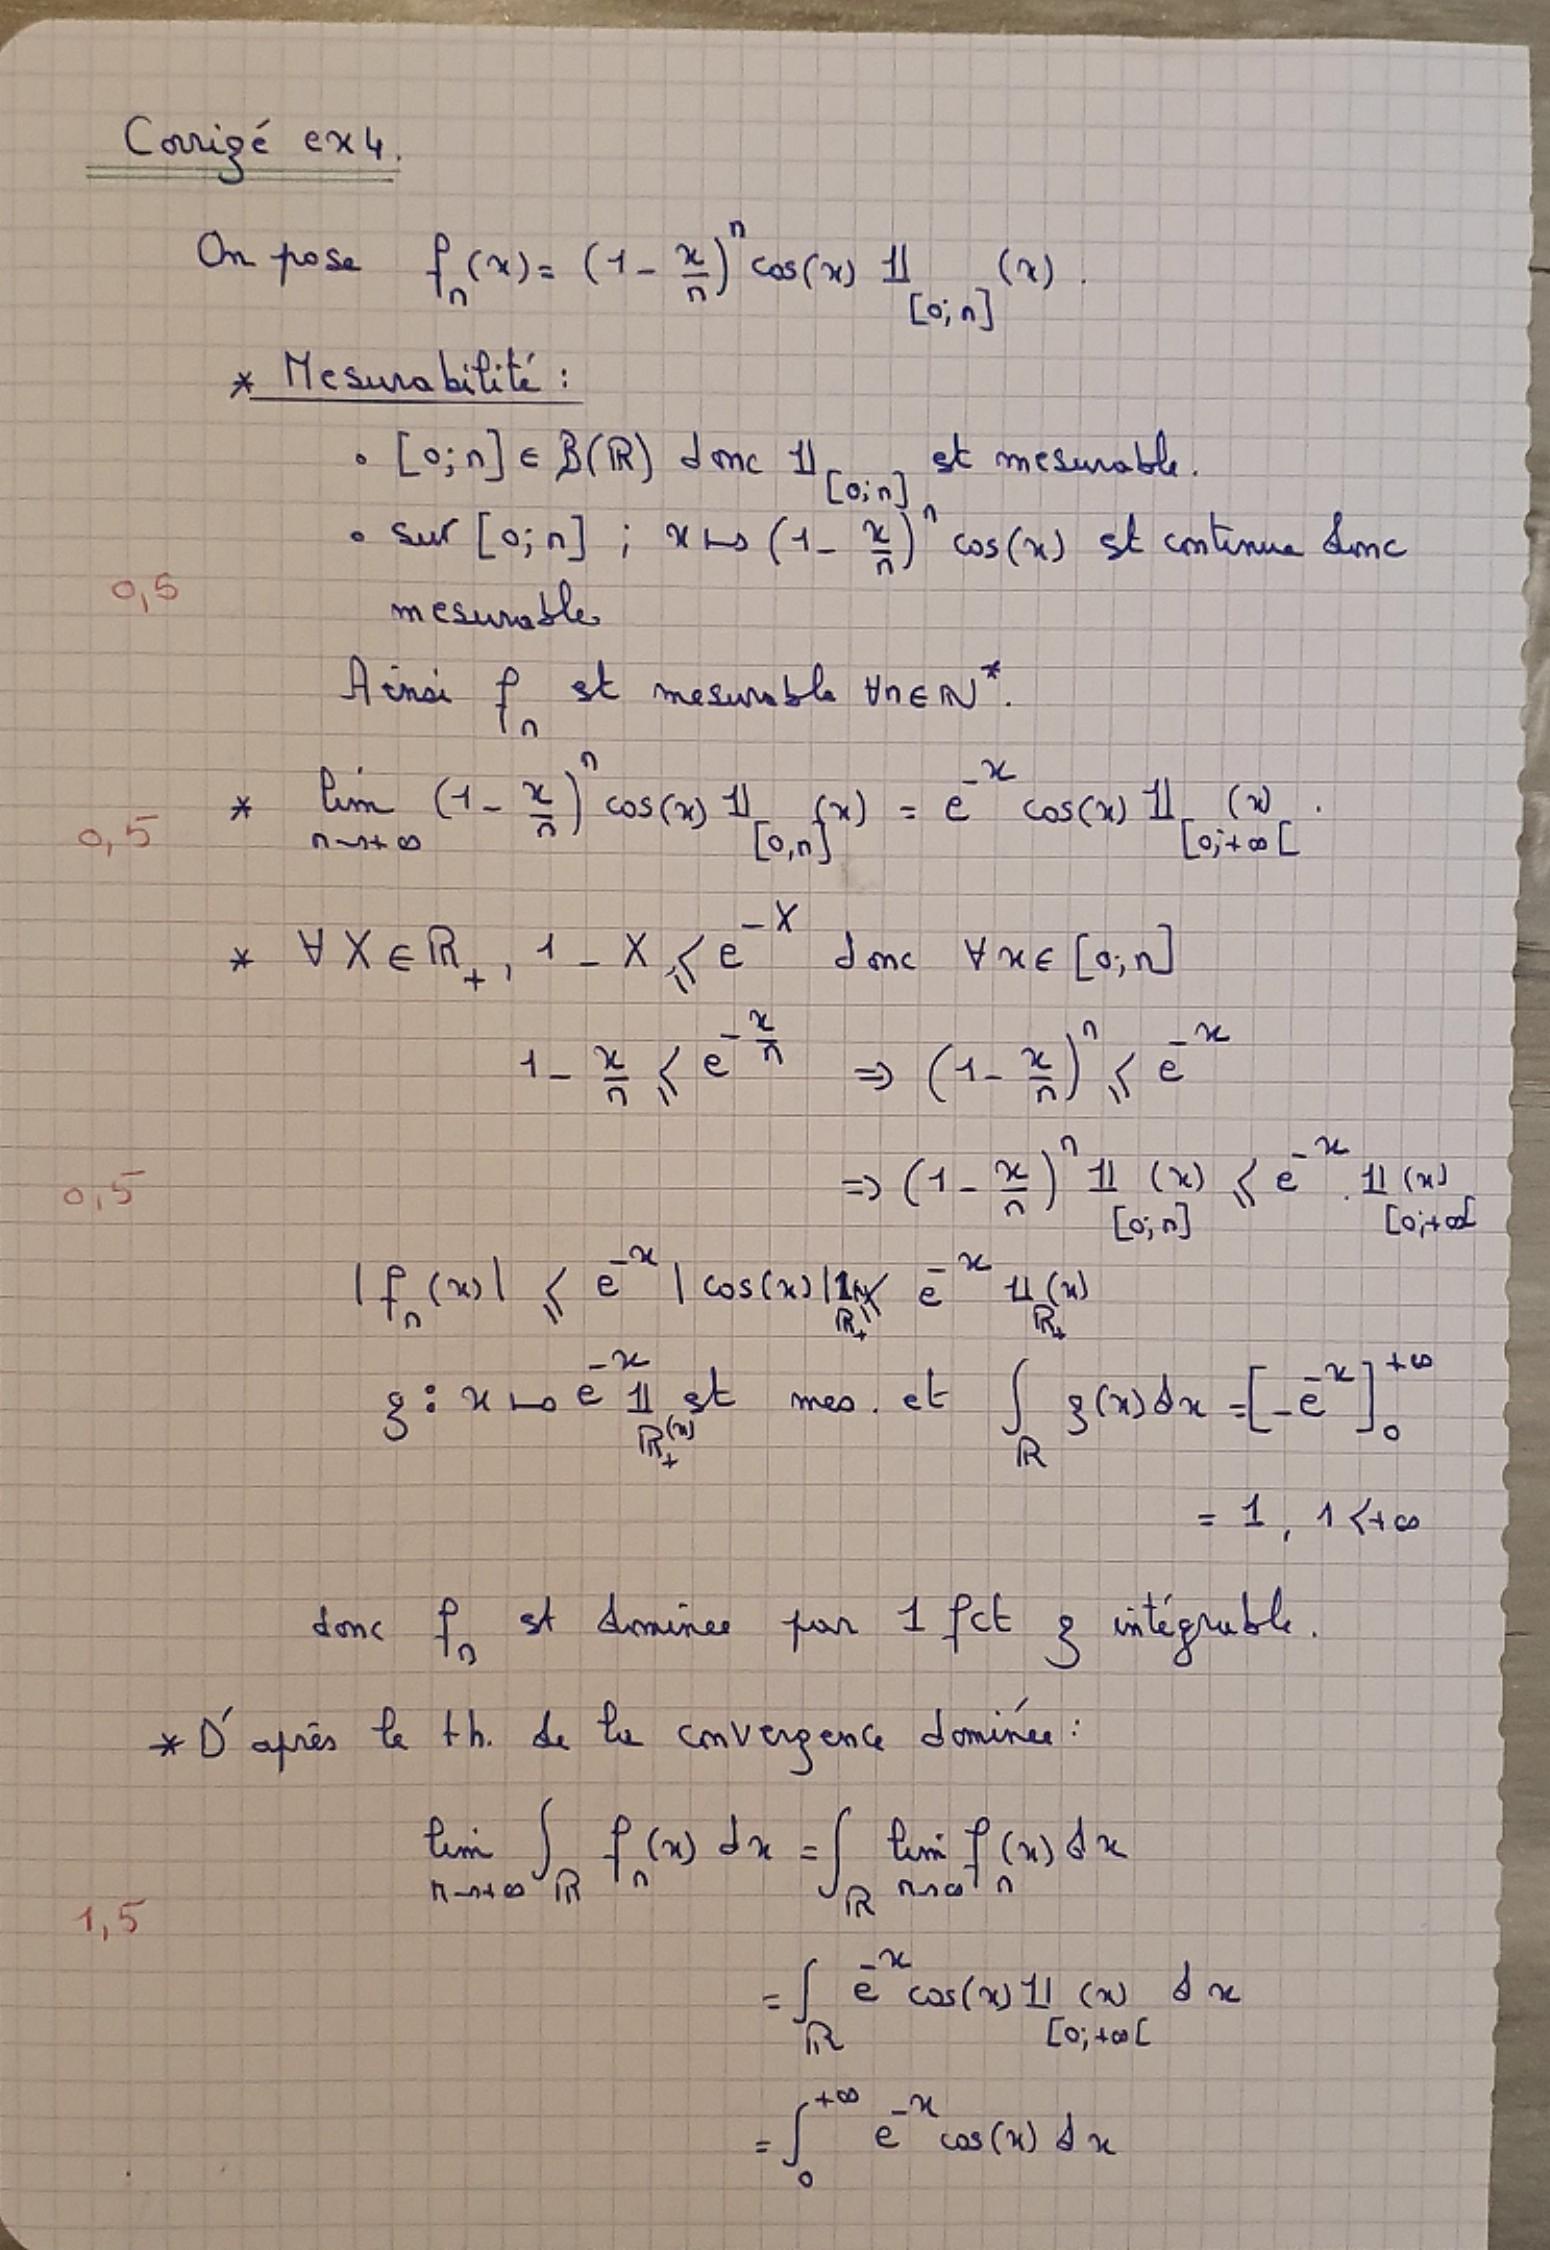 Corrigé ex 4.
On pose fₙ(x) = (1 - x/n)ⁿ cos(x) 𝟙_[0;n] (x).
* Mesurabilité :
• [0;n] ∈ B(ℝ) donc 𝟙_[0;n] est mesurable.
• sur [0;n] ; x ↦ (1 - x/n)ⁿ cos(x) est continue donc
0,5
mesurable
Ainsi fₙ est mesurable ∀n∈ℕ*.
* lim_{n→+∞} (1 - x/n)ⁿ cos(x) 𝟙_[0,n] (x) = e^{-x} cos(x) 𝟙_[0;+∞[ (x).
0,5
* ∀X∈ℝ₊, 1 - X ⩽ e^{-X} donc ∀x∈[0;n]
1 - x/n ⩽ e^{-x/n} ⇒ (1 - x/n)ⁿ ⩽ e^{-x}
0,5 ⇒ (1 - x/n)ⁿ 𝟙_[0;n] (x) ⩽ e^{-x}. 𝟙_[0;+∞[ (x)
|fₙ(x)| ⩽ e^{-x} |cos(x)| 𝟙_ℝ₊ ⩽ e^{-x} 𝟙_ℝ₊ (x)
g : x ↦ e^{-x} 𝟙_ℝ₊ (x) est mes. et ∫_ℝ g(x)dx = [-e^{-x}]₀^{+∞}
= 1, 1<+∞
donc fₙ est dominée par 1 fct g intégrable.
* D'après le th. de la convergence dominée :
lim_{n→+∞} ∫_ℝ fₙ(x) dx = ∫_ℝ lim_{n→∞} fₙ(x) dx
1,5
= ∫_ℝ e^{-x} cos(x) 𝟙_[0;+∞[ (x) dx
= ∫₀^{+∞} e^{-x} cos(x) dx